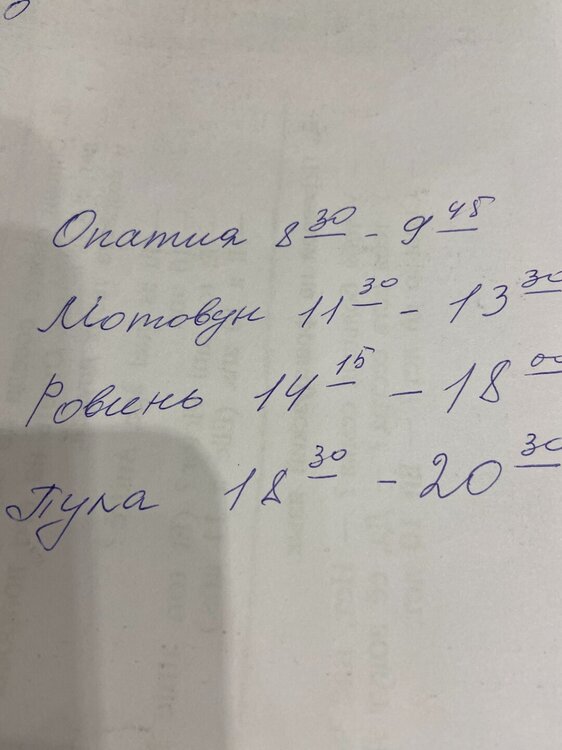 Опатия 8 30 - 9 45
Мотовун 11 30 - 13 30
Ровинь 14 15 - 18 00
Пула 18 30 - 20 30